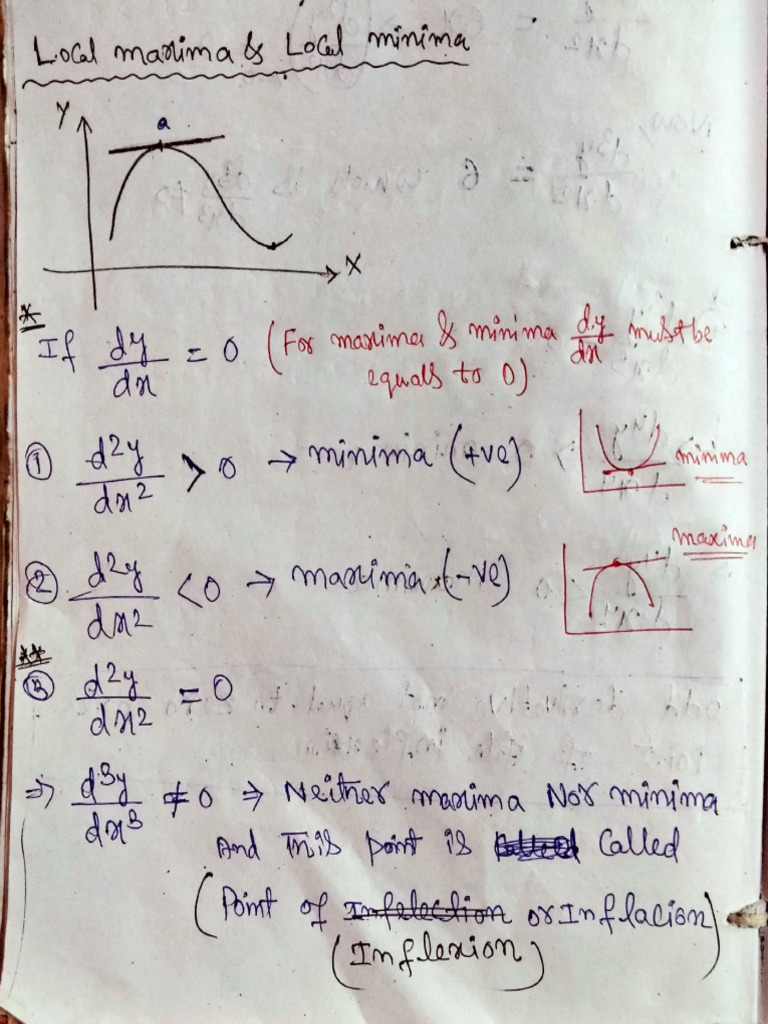 Local maxima & Local minima
Y
a
X
* If dy/dx = 0 (For maxima & minima dy/dx must be
equals to 0)
① d²y/dx² > 0 → minima (+ve)
minima
maxima
② d²y/dx² < 0 → maxima (-ve)
**
③ d²y/dx² = 0
⇒ d³y/dx³ ≠ 0 ⇒ Neither maxima Nor minima
And This point is Called
(Point of Infelection or Inflacion)
(Inflexion)